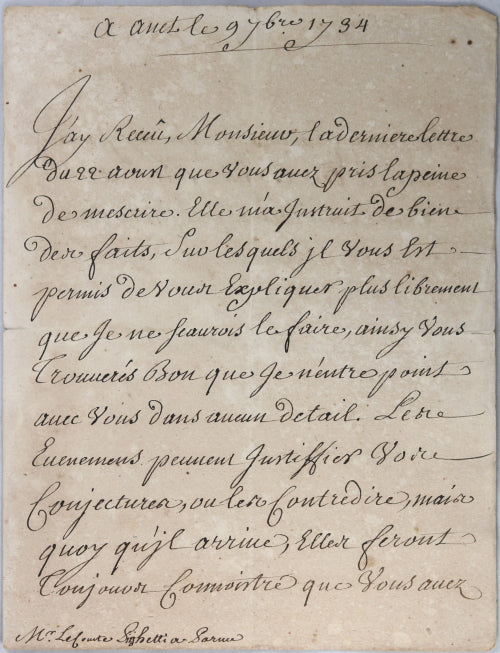 A anet le 9 7bre 1734
J'ay Receû, Monsieur, la derniere lettre
du 22 aoust que Vous auez pris la peine
de mescrire. Elle m'a Jnstruit de bien
des faits, Sur lesquels jl Vous Est
permis de Vous Expliquer plus librement
que Je ne scaurois le faire, ainsy Vous
Trouuerés Bon que Je n'entre point
auec Vous dans aucun detail. Les
Euenemens peuuent Justiffier Vos
Conjectures, ou les Contredire, mais
quoy qu'jl arriue, Elles feront
Toujours Connoistre que Vous auez
Mr. Le Comte a Parme